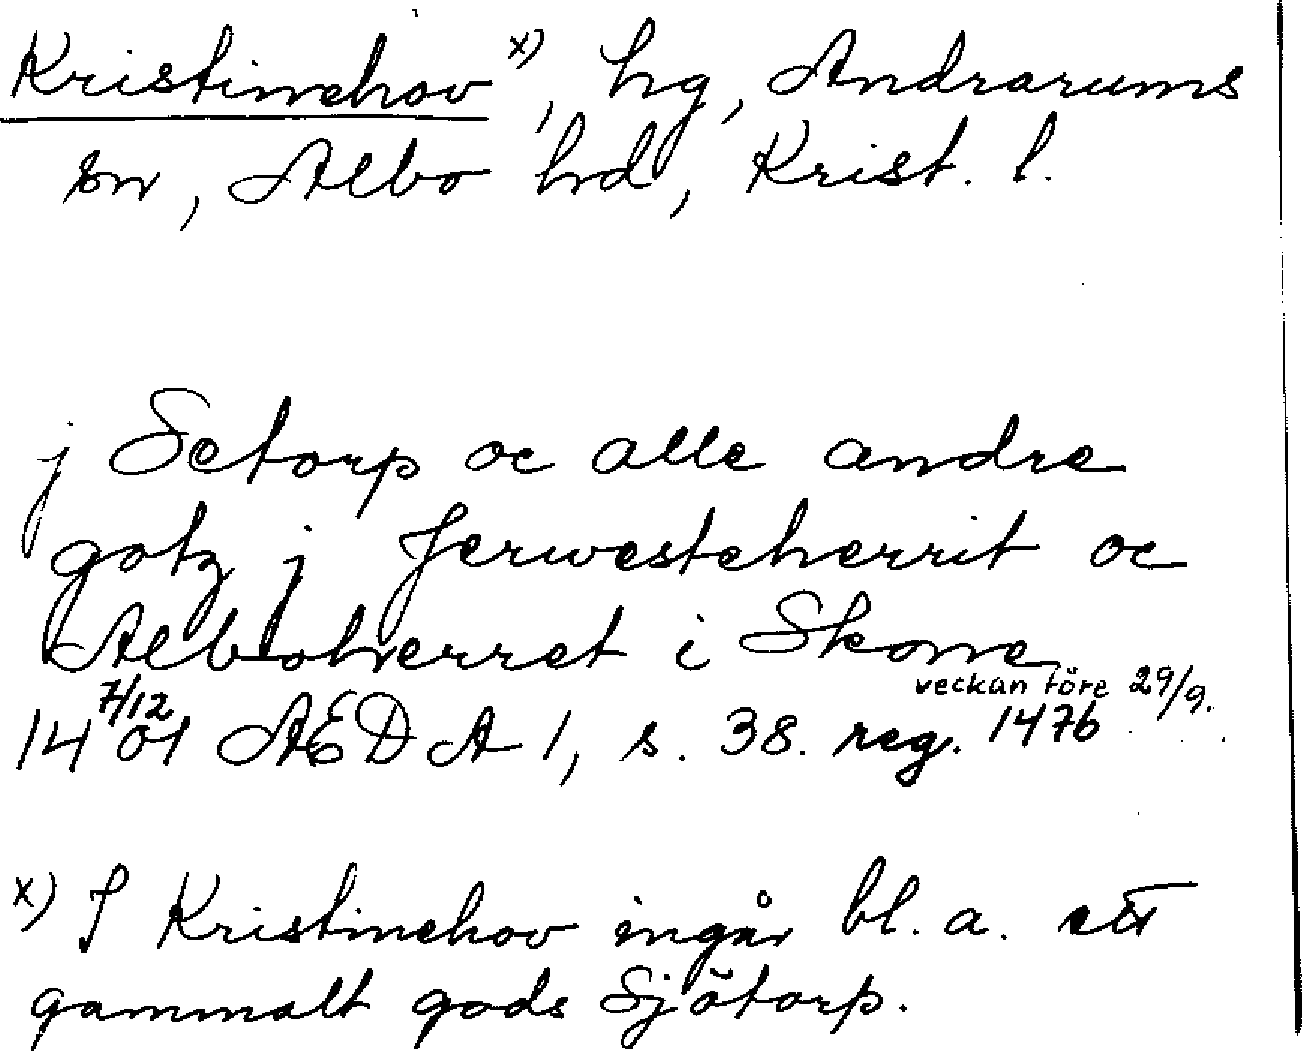 Kristinehov x), hg, Andrarums
sn, Albo hd, Krist. l.
j Setorp oc alle andre
gotz j Jerwesteherrit oc
Alboherret i Skone
7/12 veckan före 29/9.
1401 AEDA 1, s. 38. reg. 1476
x) I Kristinehov ingår bl. a. ett
gammalt gods Sjötorp.